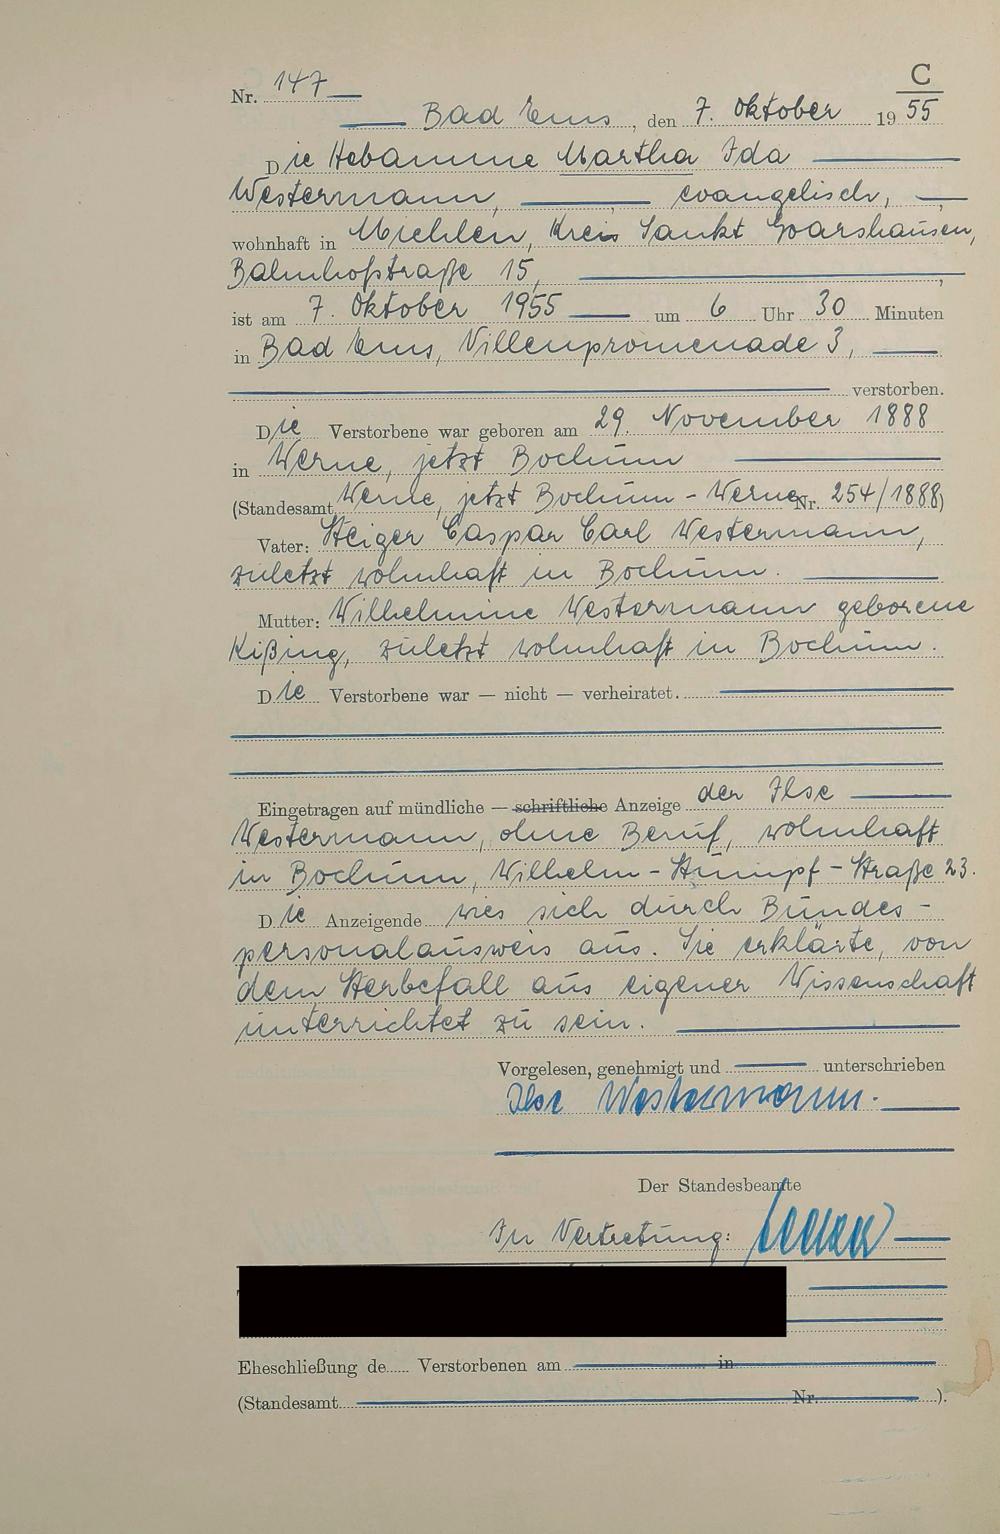 C
Nr. 147
Bad Ems, den 7. Oktober 1955
Die Hebamme Martha Ida
Westermann, evangelisch,
wohnhaft in Miehlen, Kreis Sankt Goarshausen,
Bahnhofstraße 15,
ist am 7. Oktober 1955 um 6 Uhr 30 Minuten
in Bad Ems, Villenpromenade 3,
verstorben.
Die Verstorbene war geboren am 29. November 1888
in Werne, jetzt Bochum
(Standesamt Werne, jetzt Bochum - Werne Nr. 254/1888)
Vater: Steiger Caspar Carl Westermann,
zuletzt wohnhaft in Bochum.
Mutter: Wilhelmine Westermann geborene
Kißing, zuletzt wohnhaft in Bochum.
Die Verstorbene war — nicht — verheiratet.
Eingetragen auf mündliche — schriftliche Anzeige der Ilse
Westermann, ohne Beruf, wohnhaft
in Bochum, Wilhelm - Stumpf - Straße 23.
Die Anzeigende wies sich durch Bundes-
personalausweis aus. Sie erklärte, von
dem Sterbefall aus eigener Wissenschaft
unterrichtet zu sein.
Vorgelesen, genehmigt und unterschrieben
Ilse Westermann.
Der Standesbeamte
In Vertretung:
Eheschließung de Verstorbenen am in
(Standesamt Nr. ).